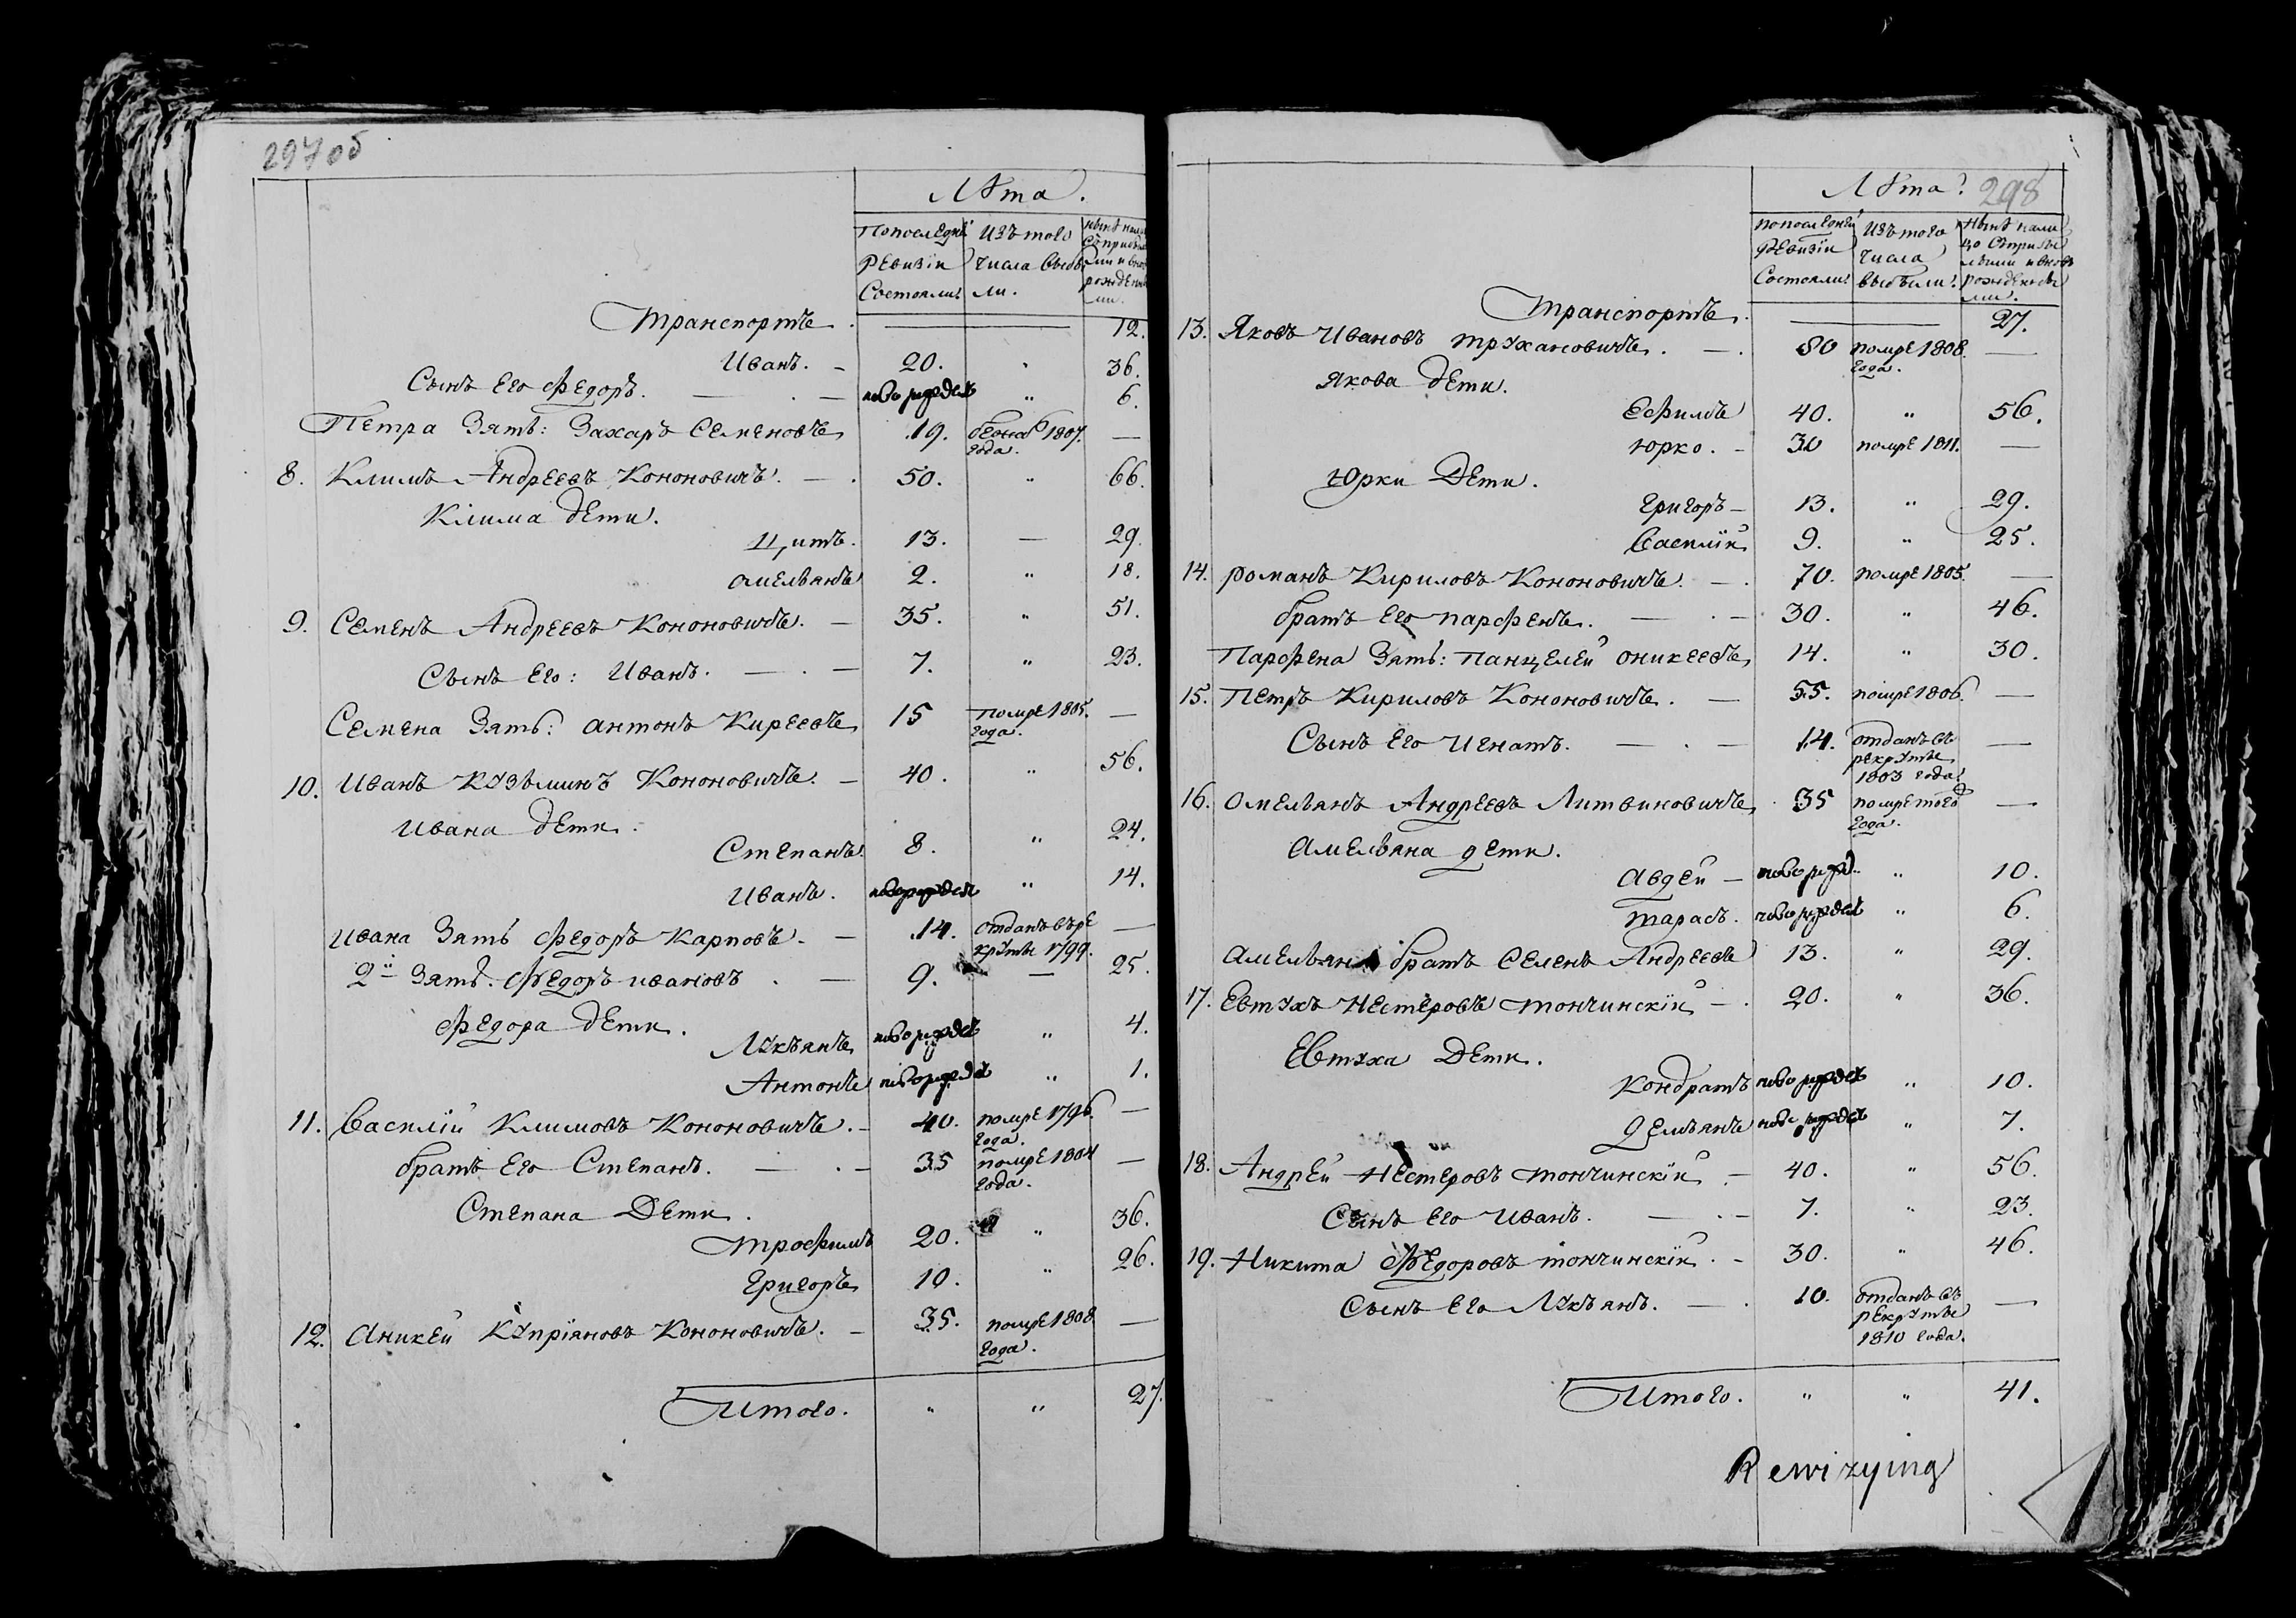 297 об
Лѣта.
По последнѣй Изъ того Нынѣ на
ревизіи числа выбы
Состояли ли.
Транспортъ. 12.
Иванъ. 20. " 36.
Сынъ Его Федоръ. новорожден " 6.
Петра Зять: Захаръ Семеновъ 19. бежалъ 1807. —
года.
8. Климъ Андреевъ Кононовичъ. 50. " 66.
Клима дети.
Титъ. 13. — 29.
Амельянъ 2. " 18.
9. Семенъ Андреевъ Кононовичъ. 35. " 51.
Сынъ Его: Иванъ. 7. " 23.
Семена Зять: Антонъ Киреевъ 15 помре 1805. —
года.
10. Иванъ Кузьминъ Кононовичъ. 40. " 56.
Ивана дети.
Степанъ 8. " 24.
Иванъ. новорожден " 14.
Ивана Зять Федоръ Карповъ. 14. отданъ въ ре —
круты 1799.
2й Зять. Федоръ Ивановъ. 9. — 25.
Федора дети.
Лукъянъ новорожден " 4.
Антонъ новорожден " 1.
11. Василій Климовъ Кононовичъ. 40. помре 1796. —
года.
братъ Его Степанъ. 35 помре 1804 —
года.
Степана Дети.
Трофимъ 20. " 36.
Григоръ 10. " 26.
12. Аникей Купріяновъ Кононовичъ. 35. помре 1808 —
года.
Итого. " " 27.
Лѣта. 298
По последней Изъ того Нынѣ нали
ревизіи числа цо съ прибы
Состояли выбыли. лыми и вновь
рожденны
ми.
Транспортъ. 27.
13. Яковъ Ивановъ Трухановичъ. 80 помре 1808. —
года.
Якова дети.
Ефимъ 40. " 56.
Юрко. 30 помре 1811. —
Юрки Дети.
Григоръ 13. " 29.
Василій 9. " 25.
14. Романъ Кириловъ Кононовичъ. 70. помре 1805. —
братъ Его Парфенъ. 30. " 46.
Парфена Зять: Панцелей Оникеевъ 14. " 30.
15. Петръ Кириловъ Кононовичъ. 55. помре 1806. —
Сынъ Его Игнатъ. 14. отданъ въ —
рекруты
1803 года.
16. Омельянъ Андреевъ Литвиновичъ 35 помре того —
года.
Амельяна дети.
Авдей новорожд. " 10.
Тарасъ. новорожден " 6.
Амельяна братъ Семенъ Андреевъ 13. " 29.
17. Евтухъ Нестеровъ Тончинскій 20. " 36.
Евтуха Дети.
Кондратъ новорожден " 10.
Демъянъ новорожден " 7.
18. Андрей Нестеровъ Тончинскій 40. " 56.
Сынъ Его Иванъ. 7. " 23.
19. Никита Федоровъ Тончинскій. 30. " 46.
Сынъ Его Лукъянъ. 10. отданъ въ —
рекруты
1810 года.
Итого. " " 41.